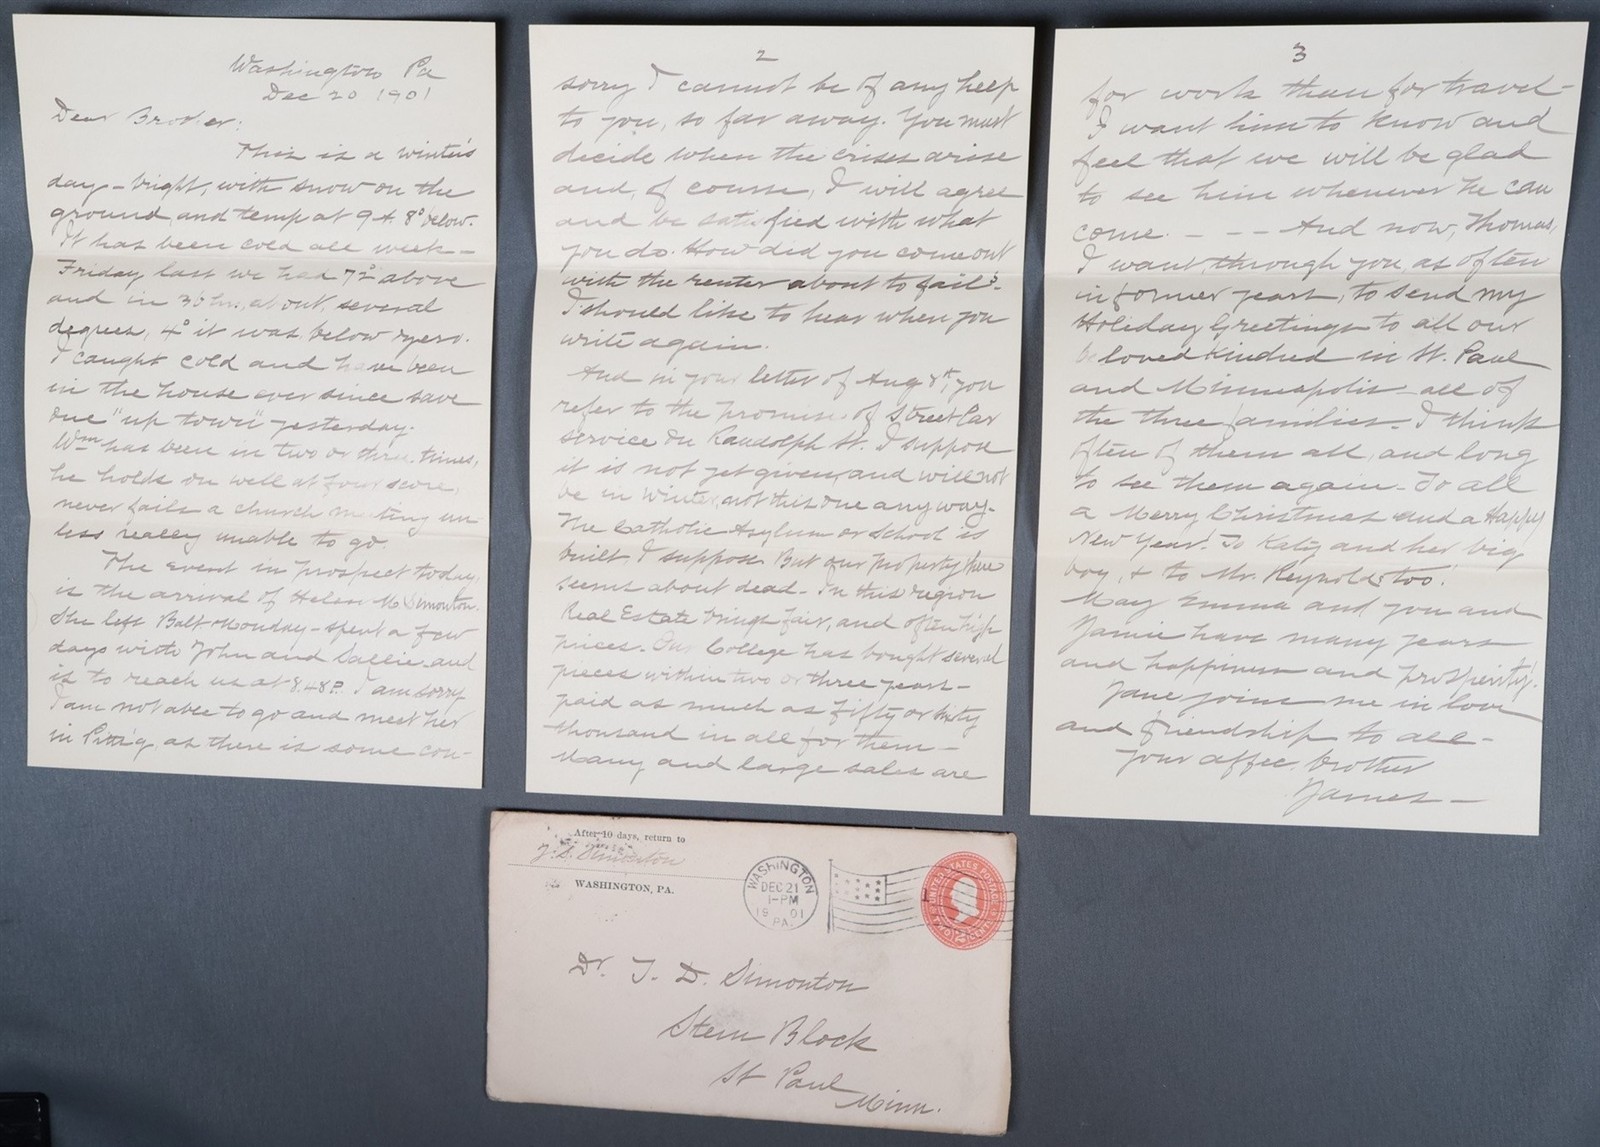 Washington Pa
Dec 20 1901
Dear Brother:
This is a winter's
day - bright, with snow on the
ground and temp at 9 A 8° below.
It has been cold all week -
Friday last we had 72° above
and in 36 hrs, about, several
degrees, 4° it was below zero.
I caught cold and have been
in the house ever since save
one "up town" yesterday.
Wm has been in two or three times,
he holds on well at four score,
never fails a church meeting un
less really unable to go.
The Event in prospect today,
is the arrival of Helen M Simonton.
She left Balt Monday - spent a few
days with John and Sallie and
is to reach us at 8.48 P. I am sorry
I am not able to go and meet her
in Pittsg, as there is some con-
2
sorry I cannot be of any help
to you, so far away. You must
decide when the crises arise
and, of course, I will agree
and be satisfied with what
you do. How did you come out
with the renter about to fail?
I should like to hear when you
write again.
And in your letter of Aug 8th, you
refer to the promise of Street Car
service on Randolph St. I suppose
it is not yet given, and will not
be in winter, not this one any way.
The Catholic Asylum or School is
built I suppose. But our property there
seems about dead. In this region
Real Estate brings fair, and often high
prices. Our College has bought several
pieces within two or three years -
paid as much as fifty or sixty
thousand in all for them -
Many and large sales are
3
for work than for travel -
I want him to know and
feel that we will be glad
to see him whenever he can
come. - - - And now, Thomas,
I want, through you, as often
in former years, to send my
Holiday Greetings to all our
beloved kindred in St. Paul
and Minneapolis - all of
the three families. I think
often of them all, and long
to see them again - To all
a Merry Christmas and a Happy
New Year! To Katy and her big
boy, & to Mr. Reynolds too!
May Emma and you and
Jamie have many years
and happiness and prosperity!
Jane joins me in love
and friendship to all -
Your affec. brother
James -
After 10 days, return to
J. S. Simonton
WASHINGTON, PA.
WASHINGTON
DEC 21
1-PM
1901
PA.
UNITED STATES POSTAGE
TWO CENTS
Dr. T. D. Simonton
Stem Block
St Paul
Minn.